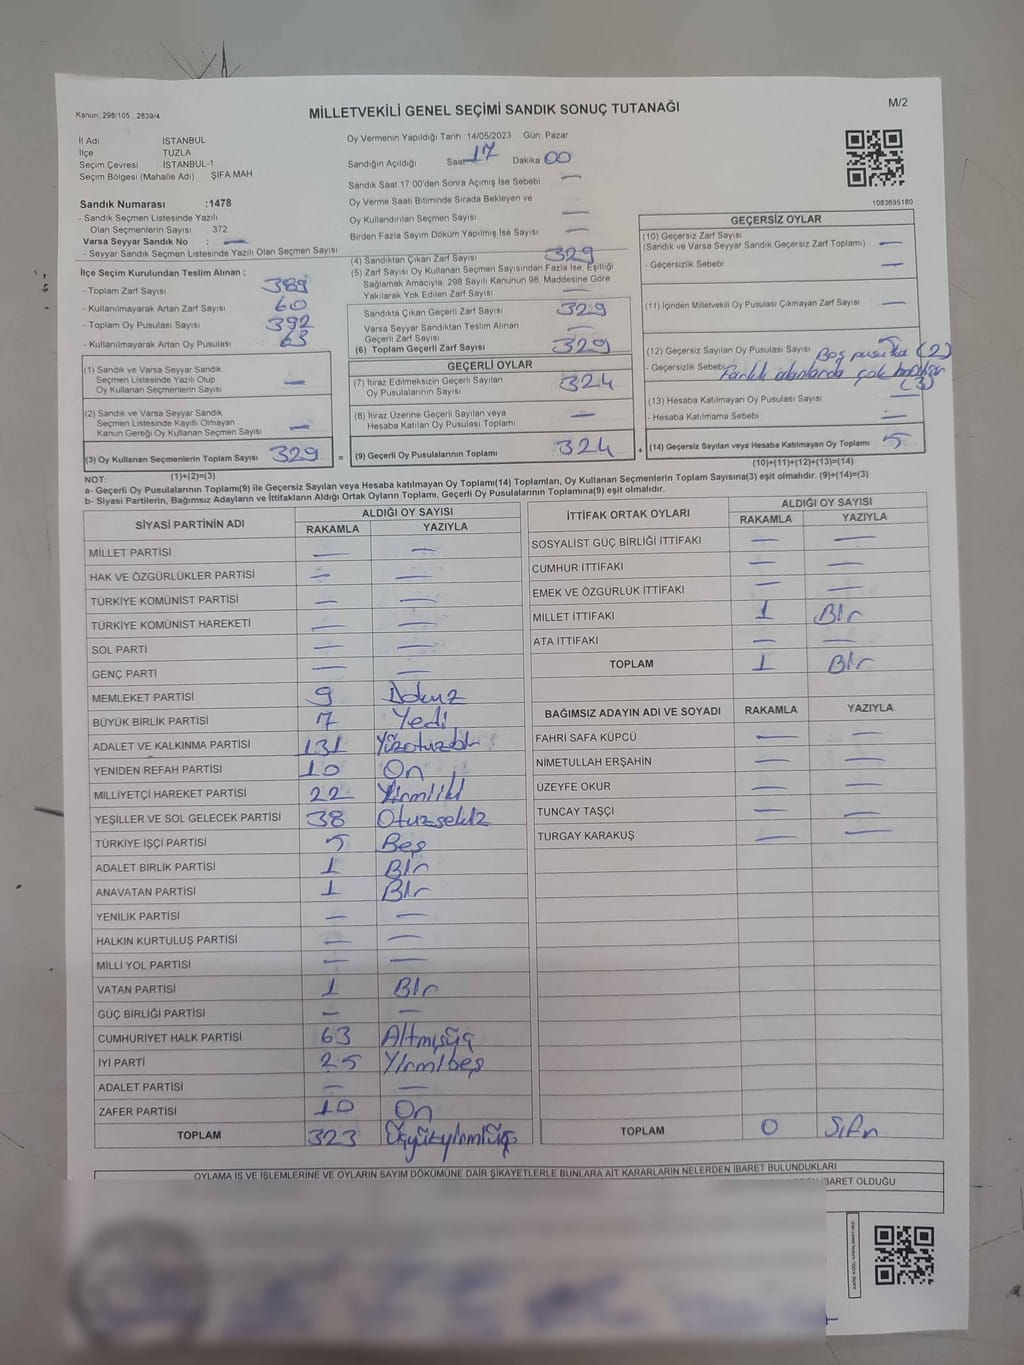 M/2
Kanun: 298/105 , 2839/4
MİLLETVEKİLİ GENEL SEÇİMİ SANDIK SONUÇ TUTANAĞI
İl Adı İSTANBUL
İlçe TUZLA
Seçim Çevresi İSTANBUL-1
Seçim Bölgesi (Mahalle Adı) ŞİFA MAH
Oy Vermenin Yapıldığı Tarih :14/05/2023 Gün: Pazar
Sandığın Açıldığı Saat 17 Dakika 00
Sandık Saat 17:00'den Sonra Açılmış İse Sebebi : —
Oy Verme Saati Bitiminde Sırada Bekleyen ve
Oy Kullandırılan Seçmen Sayısı —
Birden Fazla Sayım Döküm Yapılmış İse Sayısı : —
1083695180
Sandık Numarası :1478
- Sandık Seçmen Listesinde Yazılı
Olan Seçmenlerin Sayısı 372
Varsa Seyyar Sandık No : —
- Seyyar Sandık Seçmen Listesinde Yazılı Olan Seçmen Sayısı
İlçe Seçim Kurulundan Teslim Alınan ;
- Toplam Zarf Sayısı 389
- Kullanılmayarak Artan Zarf Sayısı 60
- Toplam Oy Pusulası Sayısı 392
- Kullanılmayarak Artan Oy Pusulası 63
(1) Sandık ve Varsa Seyyar Sandık
Seçmen Listesinde Yazılı Olup
Oy Kullanan Seçmenlerin Sayısı —
(2) Sandık ve Varsa Seyyar Sandık
Seçmen Listesinde Kayıtlı Olmayan
Kanun Gereği Oy Kullanan Seçmen Sayısı —
(3) Oy Kullanan Seçmenlerin Toplam Sayısı 329
(1)+(2)=(3)
(4) Sandıktan Çıkan Zarf Sayısı 329
(5) Zarf Sayısı Oy Kullanan Seçmen Sayısından Fazla İse, Eşitliği
Sağlamak Amacıyla, 298 Sayılı Kanunun 98. Maddesine Göre
Yakılarak Yok Edilen Zarf Sayısı —
Sandıkta Çıkan Geçerli Zarf Sayısı 329
Varsa Seyyar Sandıktan Teslim Alınan
Geçerli Zarf Sayısı —
(6) Toplam Geçerli Zarf Sayısı 329
GEÇERLİ OYLAR
(7) İtiraz Edilmeksizin Geçerli Sayılan
Oy Pusulalarının Sayısı 324
(8) İtiraz Üzerine Geçerli Sayılan veya
Hesaba Katılan Oy Pusulası Toplamı —
= (9) Geçerli Oy Pusulalarının Toplamı 324 +
GEÇERSİZ OYLAR
(10) Geçersiz Zarf Sayısı
(Sandık ve Varsa Seyyar Sandık Geçersiz Zarf Toplamı) —
- Geçersizlik Sebebi —
(11) İçinden Milletvekili Oy Pusulası Çıkmayan Zarf Sayısı —
(12) Geçersiz Sayılan Oy Pusulası Sayısı 5 Boş pusula (2)
- Geçersizlik Sebebi Farklı alanlarda çok
(3)
(13) Hesaba Katılmayan Oy Pusulası Sayısı —
- Hesaba Katılmama Sebebi —
(14) Geçersiz Sayılan veya Hesaba Katılmayan Oy Toplamı 5
(10)+(11)+(12)+(13)=(14)
NOT:
a- Geçerli Oy Pusulalarının Toplamı(9) ile Geçersiz Sayılan veya Hesaba katılmayan Oy Toplamı(14) Toplamları, Oy Kullanan Seçmenlerin Toplam Sayısına(3) eşit olmalıdır. (9)+(14)=(3)
b- Siyasi Partilerin, Bağımsız Adayların ve İttifakların Aldığı Ortak Oyların Toplamı, Geçerli Oy Pusulalarının Toplamına(9) eşit olmalıdır.
SİYASİ PARTİNİN ADI ALDIĞI OY SAYISI
RAKAMLA YAZIYLA
MİLLET PARTİSİ — —
HAK VE ÖZGÜRLÜKLER PARTİSİ — —
TÜRKİYE KOMÜNİST PARTİSİ — —
TÜRKİYE KOMÜNİST HAREKETİ — —
SOL PARTİ — —
GENÇ PARTİ — —
MEMLEKET PARTİSİ 9 Dokuz
BÜYÜK BİRLİK PARTİSİ 7 Yedi
ADALET VE KALKINMA PARTİSİ 131 Yüzotuzbir
YENİDEN REFAH PARTİSİ 10 On
MİLLİYETÇİ HAREKET PARTİSİ 22 Yirmiiki
YEŞİLLER VE SOL GELECEK PARTİSİ 38 Otuzsekiz
TÜRKİYE İŞÇİ PARTİSİ 5 Beş
ADALET BİRLİK PARTİSİ 1 Bir
ANAVATAN PARTİSİ 1 Bir
YENİLİK PARTİSİ — —
HALKIN KURTULUŞ PARTİSİ — —
MİLLİ YOL PARTİSİ — —
VATAN PARTİSİ 1 Bir
GÜÇ BİRLİĞİ PARTİSİ — —
CUMHURİYET HALK PARTİSİ 63 Altmışüç
İYİ PARTİ 25 Yirmibeş
ADALET PARTİSİ — —
ZAFER PARTİSİ 10 On
TOPLAM 323 Üçyüzyirmiüç
İTTİFAK ORTAK OYLARI ALDIĞI OY SAYISI
RAKAMLA YAZIYLA
SOSYALİST GÜÇ BİRLİĞİ İTTİFAKI — —
CUMHUR İTTİFAKI — —
EMEK VE ÖZGÜRLÜK İTTİFAKI — —
MİLLET İTTİFAKI 1 Bir
ATA İTTİFAKI — —
TOPLAM 1 Bir
BAĞIMSIZ ADAYIN ADI VE SOYADI RAKAMLA YAZIYLA
FAHRİ SAFA KÜPCÜ — —
NİMETULLAH ERŞAHİN — —
ÜZEYFE OKUR — —
TUNCAY TAŞÇI — —
TURGAY KARAKUŞ — —
TOPLAM 0 Sıfır
OYLAMA İŞ VE İŞLEMLERİNE VE OYLARIN SAYIM DÖKÜMÜNE DAİR ŞİKAYETLERLE BUNLARA AİT KARARLARIN NELERDEN İBARET BULUNDUKLARI
İBARET OLDUĞU